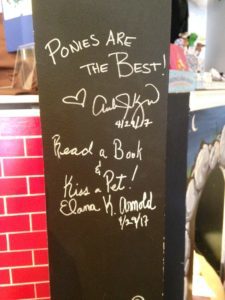 PONIES ARE
THE BEST!
4/29/17
Read a Book
&
Kiss a Pet!
Elana K. Arnold
4/29/17